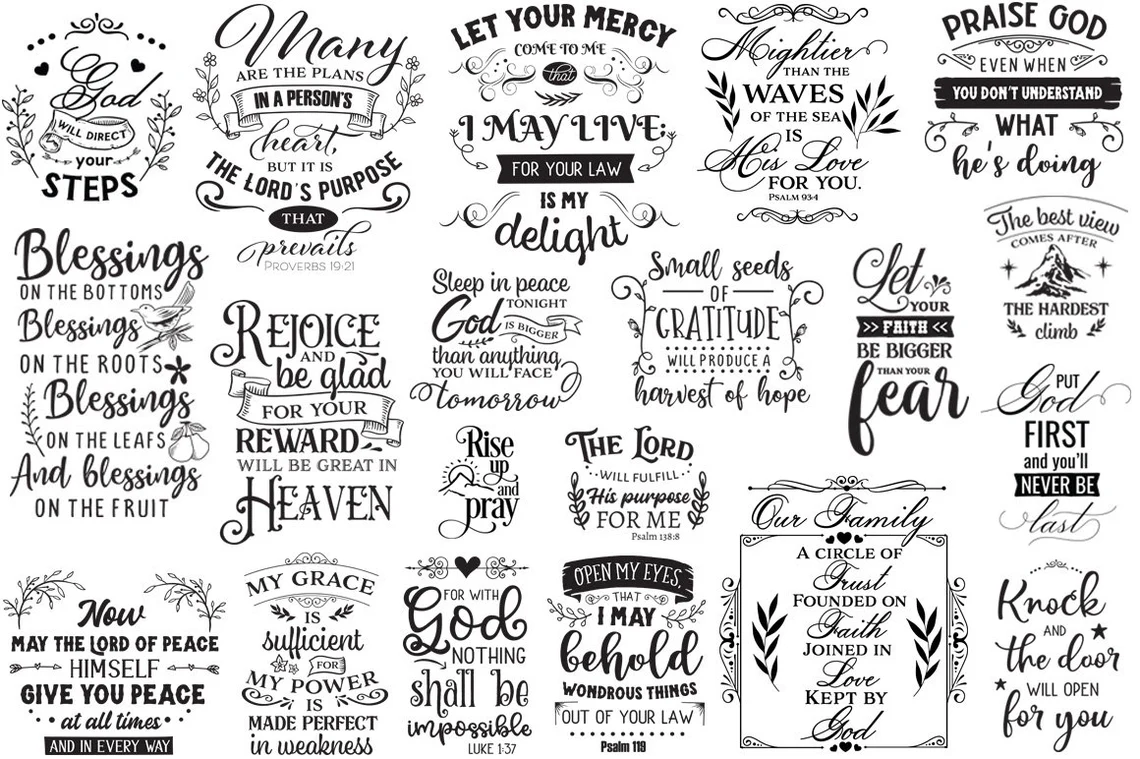 God
WILL DIRECT
your
STEPS
Many
ARE THE PLANS
IN A PERSON'S
heart,
BUT IT IS
THE LORD'S PURPOSE
THAT
prevails
PROVERBS 19:21
LET YOUR MERCY
COME TO ME
that
I MAY LIVE;
FOR YOUR LAW
IS MY
delight
Mightier
THAN THE
WAVES
OF THE SEA
IS
His Love
FOR YOU.
PSALM 93:4
PRAISE GOD
EVEN WHEN
YOU DON'T UNDERSTAND
WHAT
he's doing
Blessings
ON THE BOTTOMS
Blessings
ON THE ROOTS
Blessings
ON THE LEAFS
And blessings
ON THE FRUIT
REJOICE
AND
be glad
FOR YOUR
REWARD
WILL BE GREAT IN
HEAVEN
Sleep in peace
TONIGHT
God
IS BIGGER
than anything
YOU WILL FACE
tomorrow
Small seeds
OF
GRATITUDE
WILL PRODUCE A
harvest of hope
Let
YOUR
>> FAITH <<
BE BIGGER
THAN YOUR
fear
The best view
COMES AFTER
THE HARDEST
climb
Rise
up
and
pray
THE LORD
WILL FULFILL
His purpose
FOR ME
Psalm 138:8
PUT
God
FIRST
and you'll
NEVER BE
last
Now
MAY THE LORD OF PEACE
HIMSELF
GIVE YOU PEACE
at all times
AND IN EVERY WAY
MY GRACE
IS
sufficient
FOR
MY POWER
IS
MADE PERFECT
in weakness
FOR WITH
God
NOTHING
shall be
impossible
LUKE 1:37
OPEN MY EYES,
THAT
I MAY
behold
WONDROUS THINGS
OUT OF YOUR LAW
Psalm 119
Our Family
A CIRCLE OF
Trust
FOUNDED ON
Faith
JOINED IN
Love
KEPT BY
God
Knock
AND
the door
WILL OPEN
for you